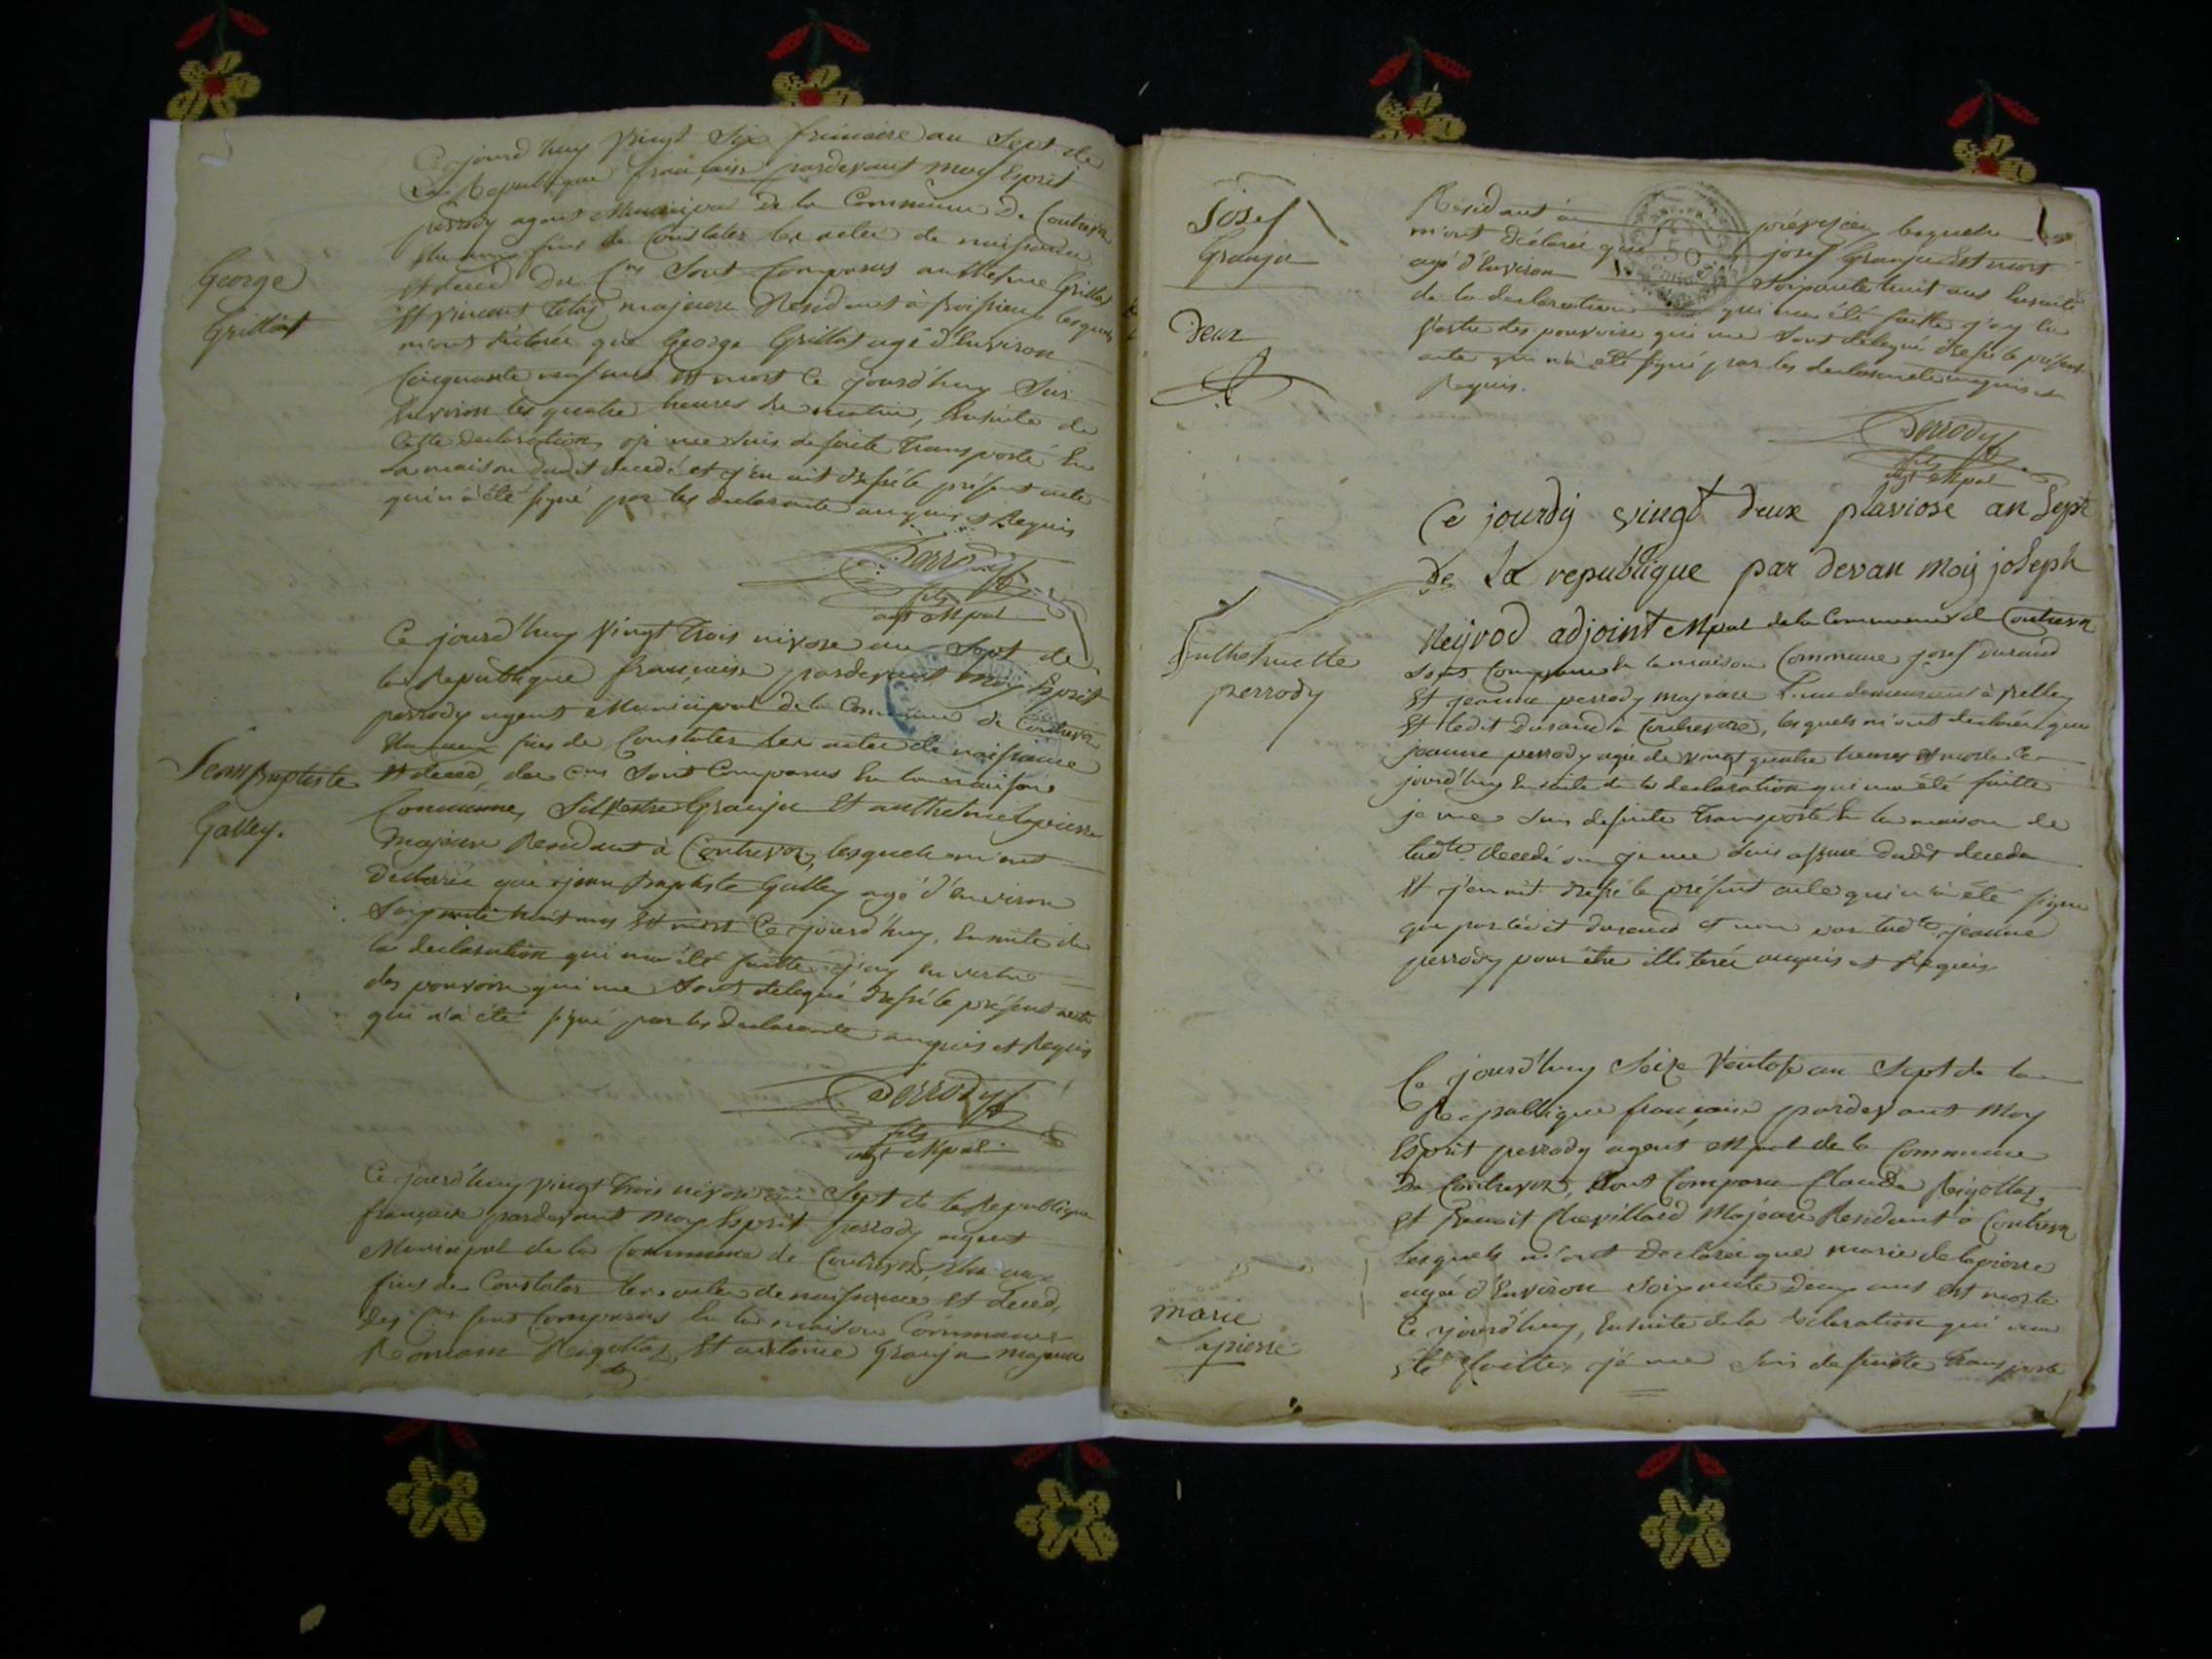 Ce jourd'huy vingt six frimaire an sept de
La Republique française pardevant moy Esprit
perrody agent Municipal de la Commune de Contrevoz
élu aux fins de Constater les actes de naissance
et deced des C.ens sont Comparus anthelme Grillot
et vincent majeurs Residant à lesquels
m'ont déclarés que George Grillot agé d'Environ
George
Grillot
Cinquante neuf ans est mort Ce jourd'huy Sur
Environ les quatre heures du matin, Ensuite de
Cette declaration, je me suis de suite Transporté En
La maison dudit decedé et j'en ait dressé le présent acte
qui n'a été signé par les declarants enquis et Requis
Perrody
fils
agt Mpal
Ce jourd'huy Vingt trois nivose an Sept de
la Republique française pardevant moy Esprit
perrody agent Municipal de la Commune de Contrevoz
élu aux fins de Constater les actes de naissance
et deced, des C.ens sont Comparus En la maison
Jean Baptiste
Galley.
Commune, Silvestre Granju Et anthelme Lapierre
majeurs Residant à Contrevoz, lesquels m'ont
Declarés que jean Baptiste Galley agé d'environ
Soixante huit ans Est mort Ce jourd'huy, Ensuite de
la declaration qui m'a été faitte j'ay En vertu
des pouvoirs qui me sont delegué dressé le présent acte
qui n'a été signé par les declarants enquis et Requis
Perrody
fils
agt Mpal
Ce jourd'huy vingt trois nivose an Sept de la Republique
française pardevant moy Esprit perrody agent
Municipal de la Commune de Contrevoz, élu aux
fins de Constater les actes de naissance et deced,
des C.ens sont Comparus En la maison Commune
Romain Reigottaz, Et antoine Granju majeurs
Josef
Granju
Deux
Résidant à préveyzieu lesquels
m'ont déclarés que josef Granju Est mort
agé d'Environ Soixante huit ans Ensuite
de la declaration qui m'a été faitte j'ay En
Vertu des pouvoirs qui me sont delegué dressé le présent
acte qui n'a été signé par les declarants enquis et
Requis.
Perrody
fils
agt Mpal
Ce jourdy vingt deux plaviose an Sept
De La republique par devan moy joseph
Reyvod adjoint Mpal de la Commune de Contrevoz
anthelmette
perrody
sont Comparus En la maison Commune josef Durand
Et jeanne perrody majeurs l'une demeurant à
Et ledit Durand à Contrevoz, lesquels m'ont declarés que
jeanne perrody agée de vingt quatre heures Est morte Ce
jourd'huy Ensuite de la declaration qui m'a été faitte
je me suis desuite Transporté En la maison de
ladte decedé ou je me suis assuré dudit deceda
Et j'en ait dressé le présent acte qui n'a été signé
que par ledit durand et non par ladte jeanne
perrody pour être illiterée enquis et Requis
Ce jourd'huy Seize Ventose an Sept de la
Republique française pardevant Moy
Esprit perrody agent Mpal de la Commune
De Contrevoz, Sont Comparu Claude Reigottaz,
Et Benoit Chevillard Majeurs Residant à Contrevoz
lesquels m'ont Declarés que marie delapierre
agée d'Environ Soixante deux ans est morte
marie
Lapierre
Ce jourd'huy, Ensuite de la declaration qui m'a
été faitte, je me suis desuitte Transporté